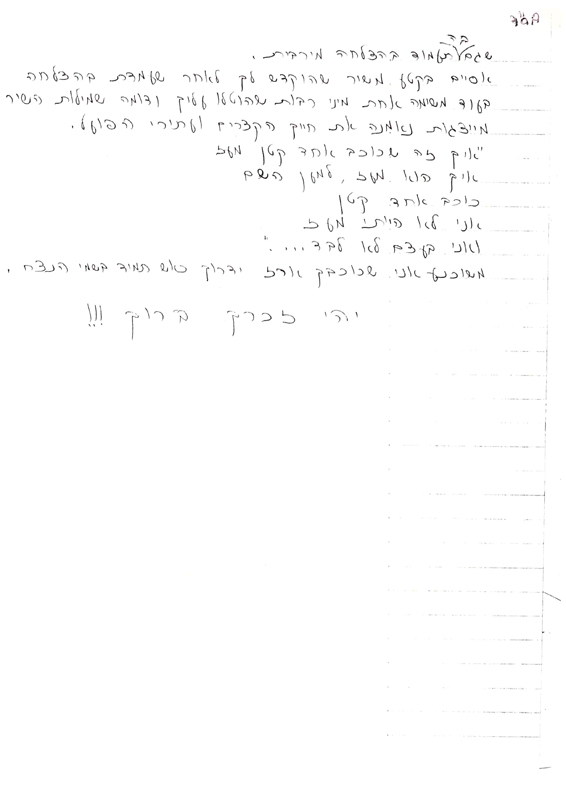 בס"ד
שגם בה תעמוד בהצלחה מירבית.
אסיים בקטע משיר שהוקדש לך לאחר שעמדת בהצלחה
בעוד משימה אחת מיני רבות שהוטלו עליך ודומה שמילות השיר
מייצגות נאמנה את חייך הקצרים ועתירי הפועל.
"איך זה שכוכב אחד קטן מעז
איך הוא מעז, למען השם
כוכב אחד קטן
אני לא הייתי מעז
ואני בעצם לא לבד...."
משוכנע אני שכוכבך ארז ידרוך כאש תמיד בשמי הנצח.
יהי זכרך ברוך !!!